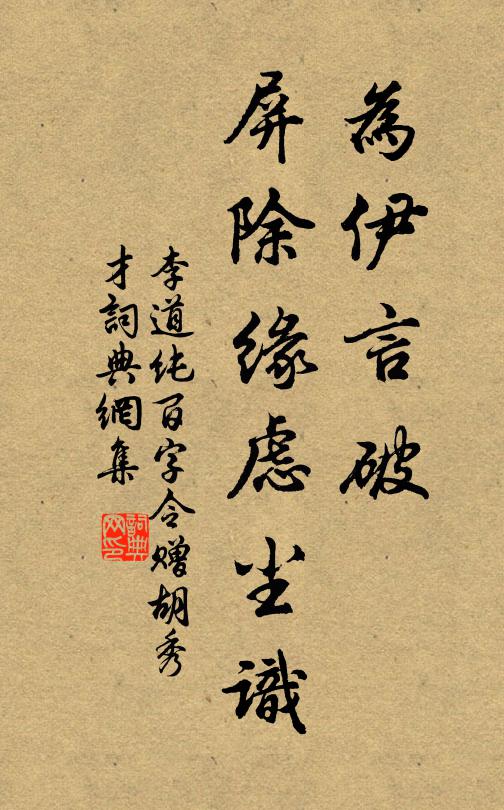 為伊言破
屏除缘慮尘識
李道纯百字令赠胡秀
才詞典網集
詞典
网印